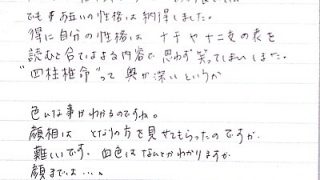 でも お互いの性格は納得しました。
得に自分の性格は 十干や十二支の表を
読むと合てはまる内容で思わず笑ってしまいました。
"四柱推命"って 奥が深いというか
色んな事がわかるのですね。
顔相は となりの方を見せてもらったのですが
難しいです。血色はなんとかわかりますが
顔までは…。